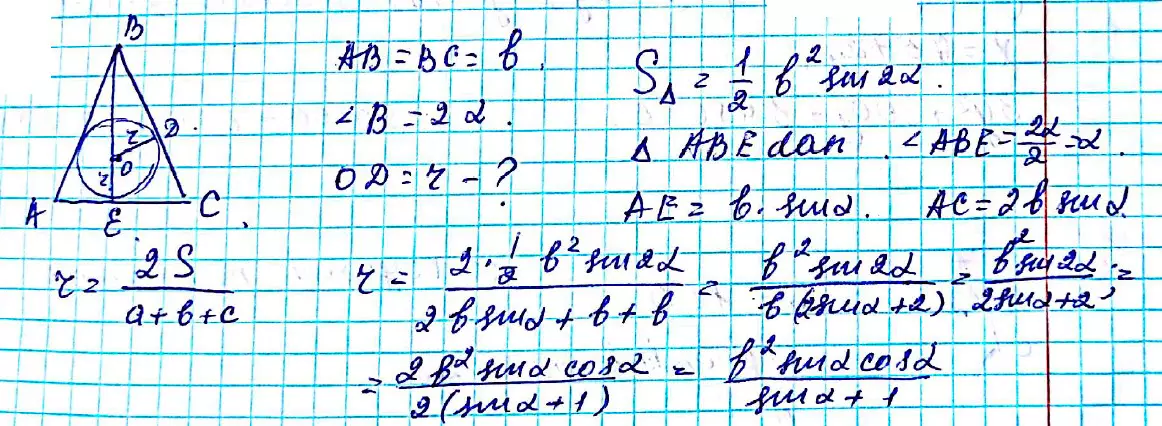 B
D
r
O
r
A
E
C
AB = BC = b.
∠B = 2α.
OD = r - ?
S△ = 1/2 b² sin2α.
△ ABE dan . ∠ABE = 2α/2 = α.
AE = b · sinα. AC = 2b sinα.
r = 2S/(a+b+c)
r = (2 · 1/2 b² sin2α)/(2b sinα + b + b) = (b² sin2α)/(b(2sinα+2)) = (b² sin2α)/(2sinα+2) =
= (2b² sinα cosα)/(2(sinα+1)) = (b² sinα cosα)/(sinα+1)